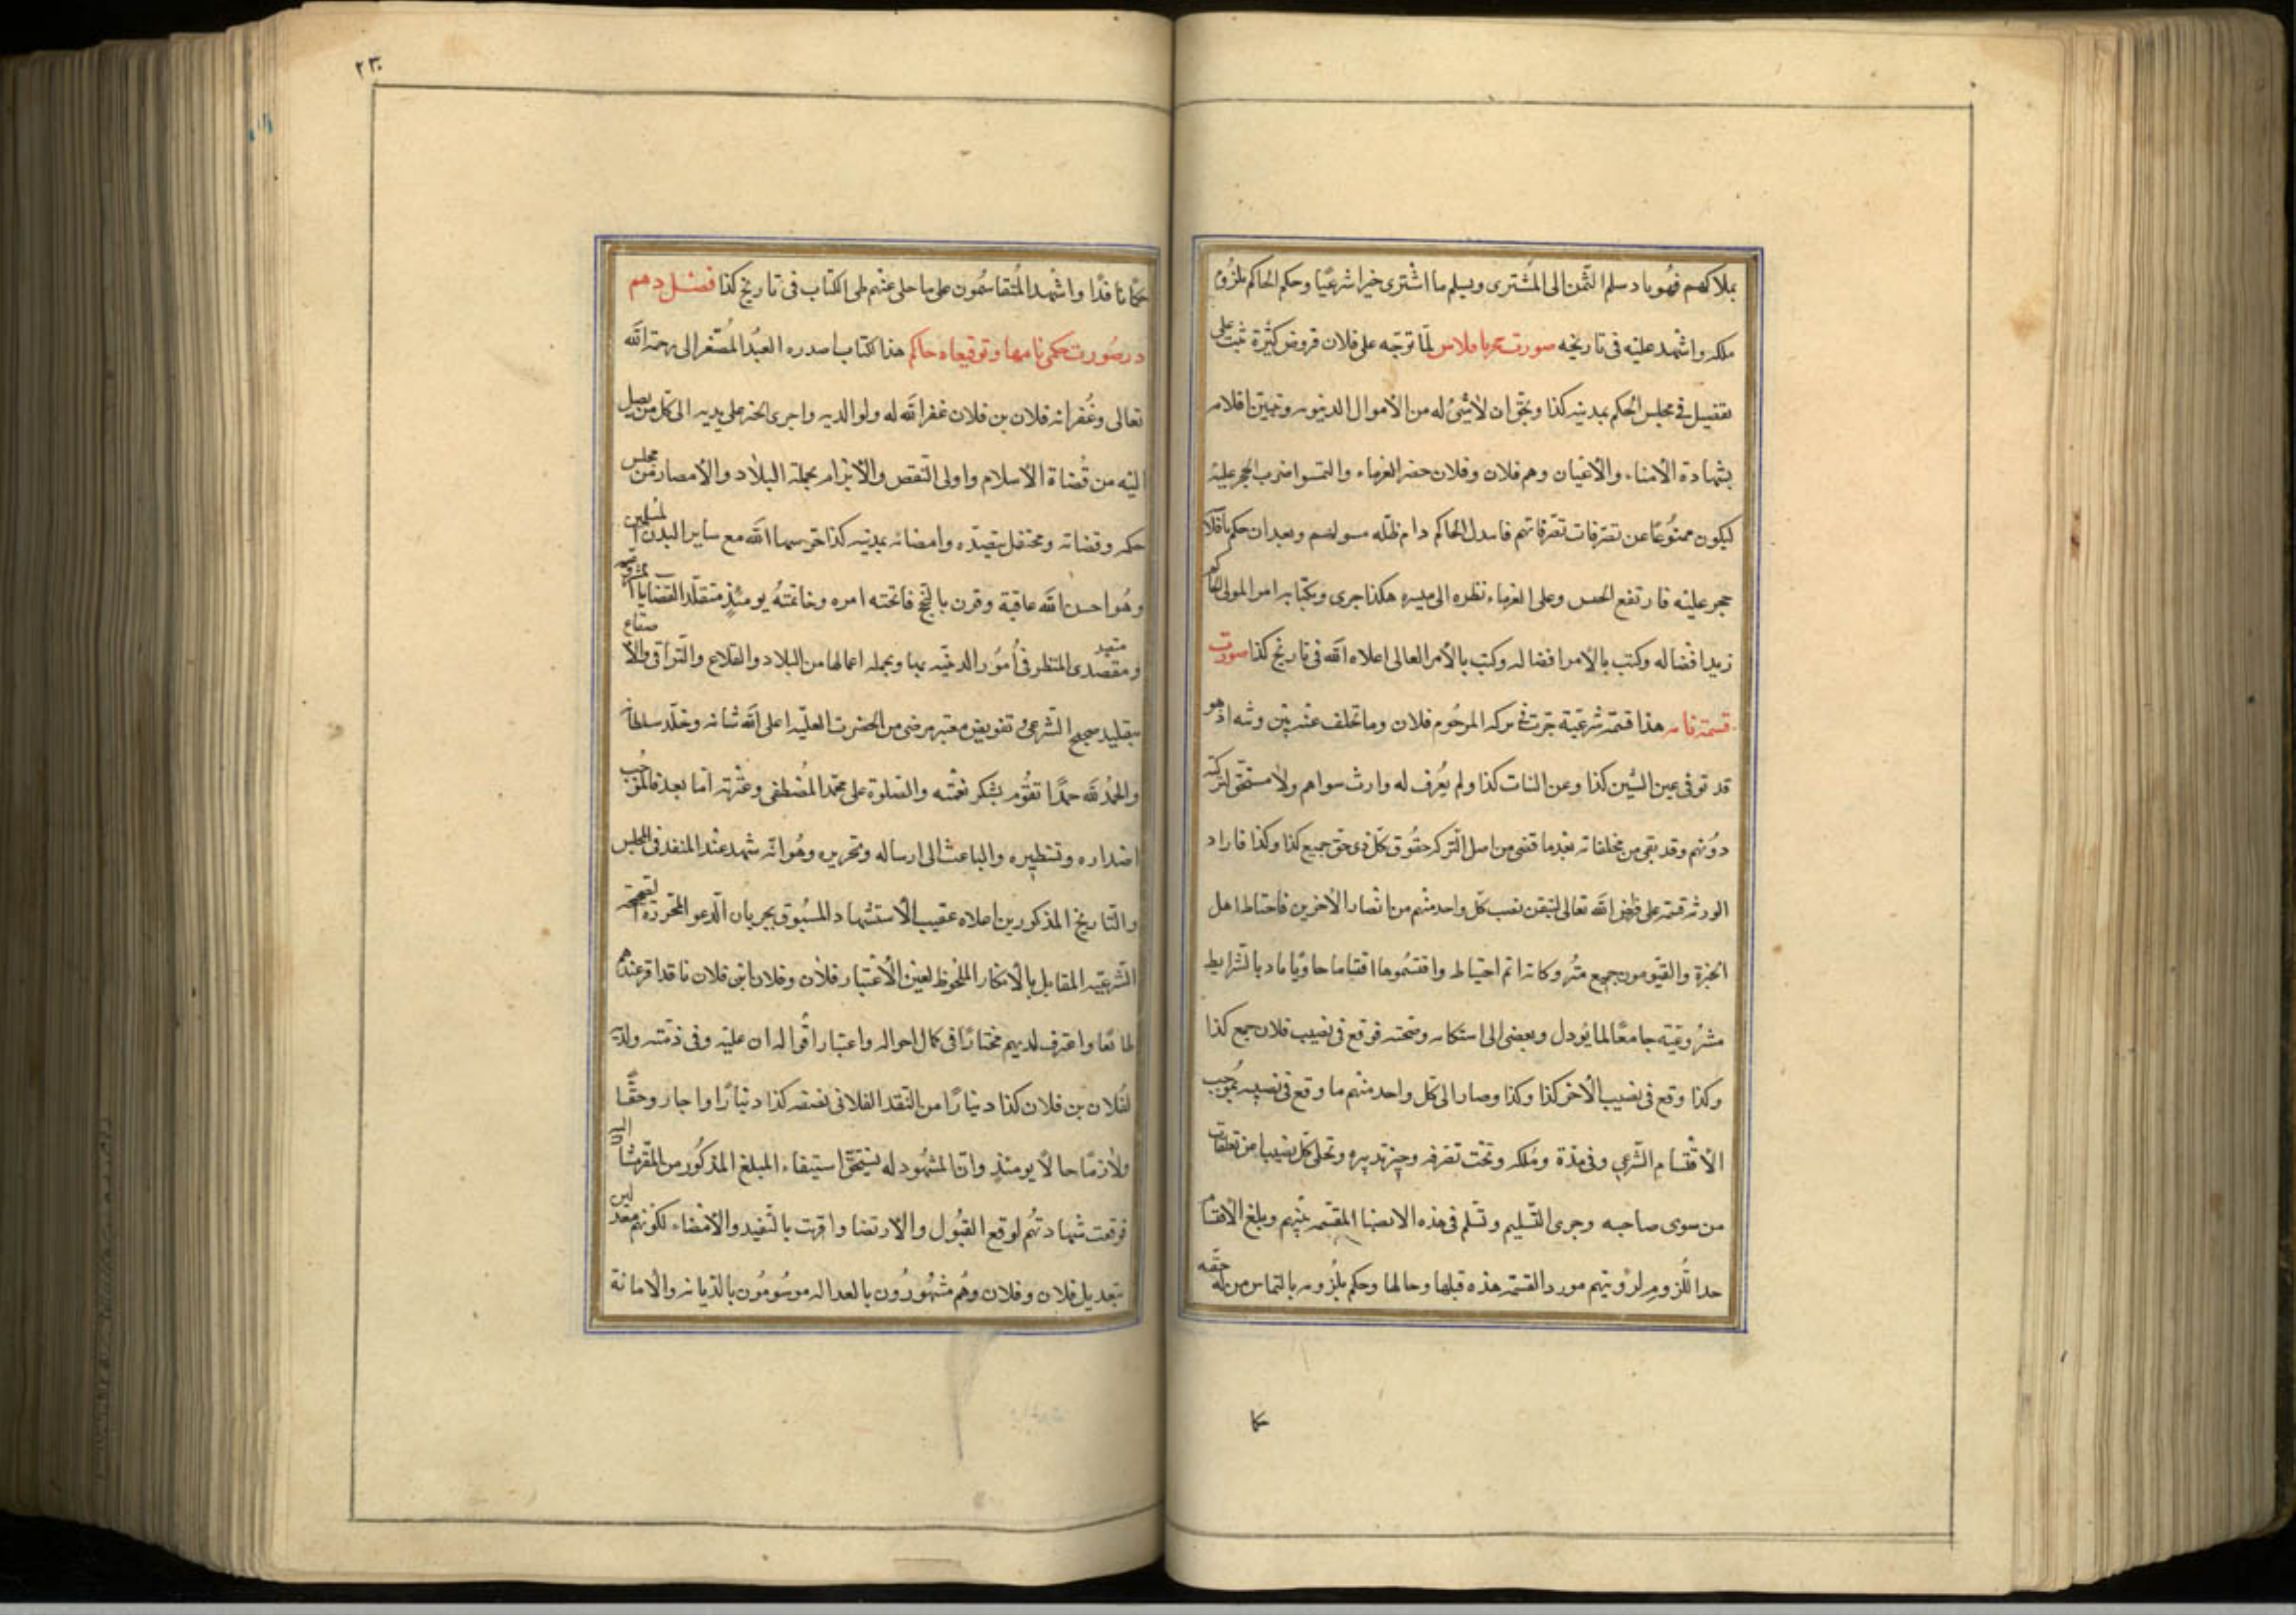 بملاكهم فهو باد سلم الثمن الى المشترى ويسلم ما اشترى خيرا شرعيا وحكم الحاكم بلزوم
ملكه واشهد عليه فى تاريخه صورت حجر بافلاس لما توجه على فلان قروض كثيرة ثبت على
تفصيل فى مجلس الحكم بمدينه كذا وتحقق ان لا شئ له من الأموال الدنيويه وتبين افلاسه
بشهادة الأمناء والأعيان وهم فلان وفلان حضر الغرماء والتمسوا ضرب الحجر عليه
ليكون ممنوعا عن تصرفات تصرفاتهم فاسدل الحاكم دام ظله مسولهم وبعد ان حكم بافلا
حجر عليه فارتفع الحبس وعلى الغرماء نظره الى ميسره هكذا جرى وبكتابه امر المولى الحاكم
زيد افضاله وكتب بالأمر افضاله وكتب بالأمر العالى اعلاه الله فى تاريخ كذا صورت
قسمة نامه هذا قسمة شرعية جرت فى تركه المرحوم فلان وما تخلف عنه بين ورثه اذ هو
قد توفى عن البنين كذا وعن البنات كذا ولم يعرف له وارث سواهم ولا مستحق لتركته
دونهم وقد بقى من مخلفاته بعد ما قضى من اصل التركه حقوق كل ذى حق جميع كذا وكذا فاراد
الورثه قسمته على فرايض الله تعالى ليتيقن نصب كل واحد منهم من انصبا الأخرين فاحتاط اهل
الخبرة والقيومون جميع متروكاته اتم احتياط واقتسموها اقتساما حاويا باد بالشرايط
مشروعيته جامعا لما يودل وبعضى الى استكامه وصحته فوقع فى نصيب فلان جميع كذا
وكذا وقع فى نصيب الأخر كذا وكذا وصار الى كل واحد منهم ما وقع فى نصيبه بموجب
الأقتسام الشرعي وفى هذة وملكه وتحت تصرفه وحيز تدبيره وتخلى كل نصيب من تعلقات
من سوى صاحبه وجرى التسليم وتسلم فى هذه الانصبا المقتسمه بينهم وبلغ الأقتسام
حد اللزوم لرؤيتهم مورد القسمة هذه قبلها وحالها وحكم بلزومه بالتماس من له حقه
حكا
٢٣٠
حكما نافذا واشهد المتقاسمون على ما حلى عنهم طى الكتاب فى تاريخ كذا فصل دهم
در صورت حكمى نامها وتوقيعاه حاكم هذا كتاب اصدره العبد المستغفر الى رحمة الله
تعالى وغفرانه فلان بن فلان غفر الله له ولوالديه واجرى الخير على يديه الى كل من يصل
اليه من قضاة الأسلام واولى النقض والأبرام بجملة البلاد والأمصار من مجلس
حكمه وقضائه ومحتفل تقيده وامضائه بمدينه كذا حرسها الله مع ساير البلدن المسلمين
وهو احسن الله عاقبة وقرن بالنجح فاتحته امره وخاتمته يومئذ متقلد القضايا بمشروعيه
ومقصدى المنظر فى أمور الدينيه بها وبجمله اعمالها من البلاد والقلاع والتراقى والأصقاع
بتقليد صحيح الشرعى تفويض معتبر مرضى من الحضرت العليه اعلى الله شانه وخلد سلطانه
والحمد لله حمدا تقوم بشكر نعمته والصلوة على محمد المصطفى وعترته اما بعد فالموجب
اصداره وتسطيره والباعث الى ارساله وتحريره وهو انه شهد عند المنفذ فى المجلس
والتاريخ المذكورين اعلاه عقيب الأستشهاد المسبوق بجريان الدعو المحررة الصحيحة
الشرعيه المقابل بالأنكار الملحوظ لعين الأعتبار فلان وفلان ابنى فلان ناقد اقر عندهم
طائعا واعترف لديهم مختارا فى كمال احواله واعتبار اقواله ان عليه وفى ذمته ولديه
لفلان بن فلان كذا دينارا من النقد الفلانى نصفه كذا دينارا واجار وحقا
ولازما حالا يومئذ وان المشهود له يستحق استيفاء المبلغ المذكور من المقر مشار اليه
فوقعت شهادتهم لوقع القبول والارتضا واقرنت بالتنفيد والأمضاء لكونهم معدلين
بتعديل فلان وفلان وهم مشهورون بالعداله موسومون بالديانه والأمانة